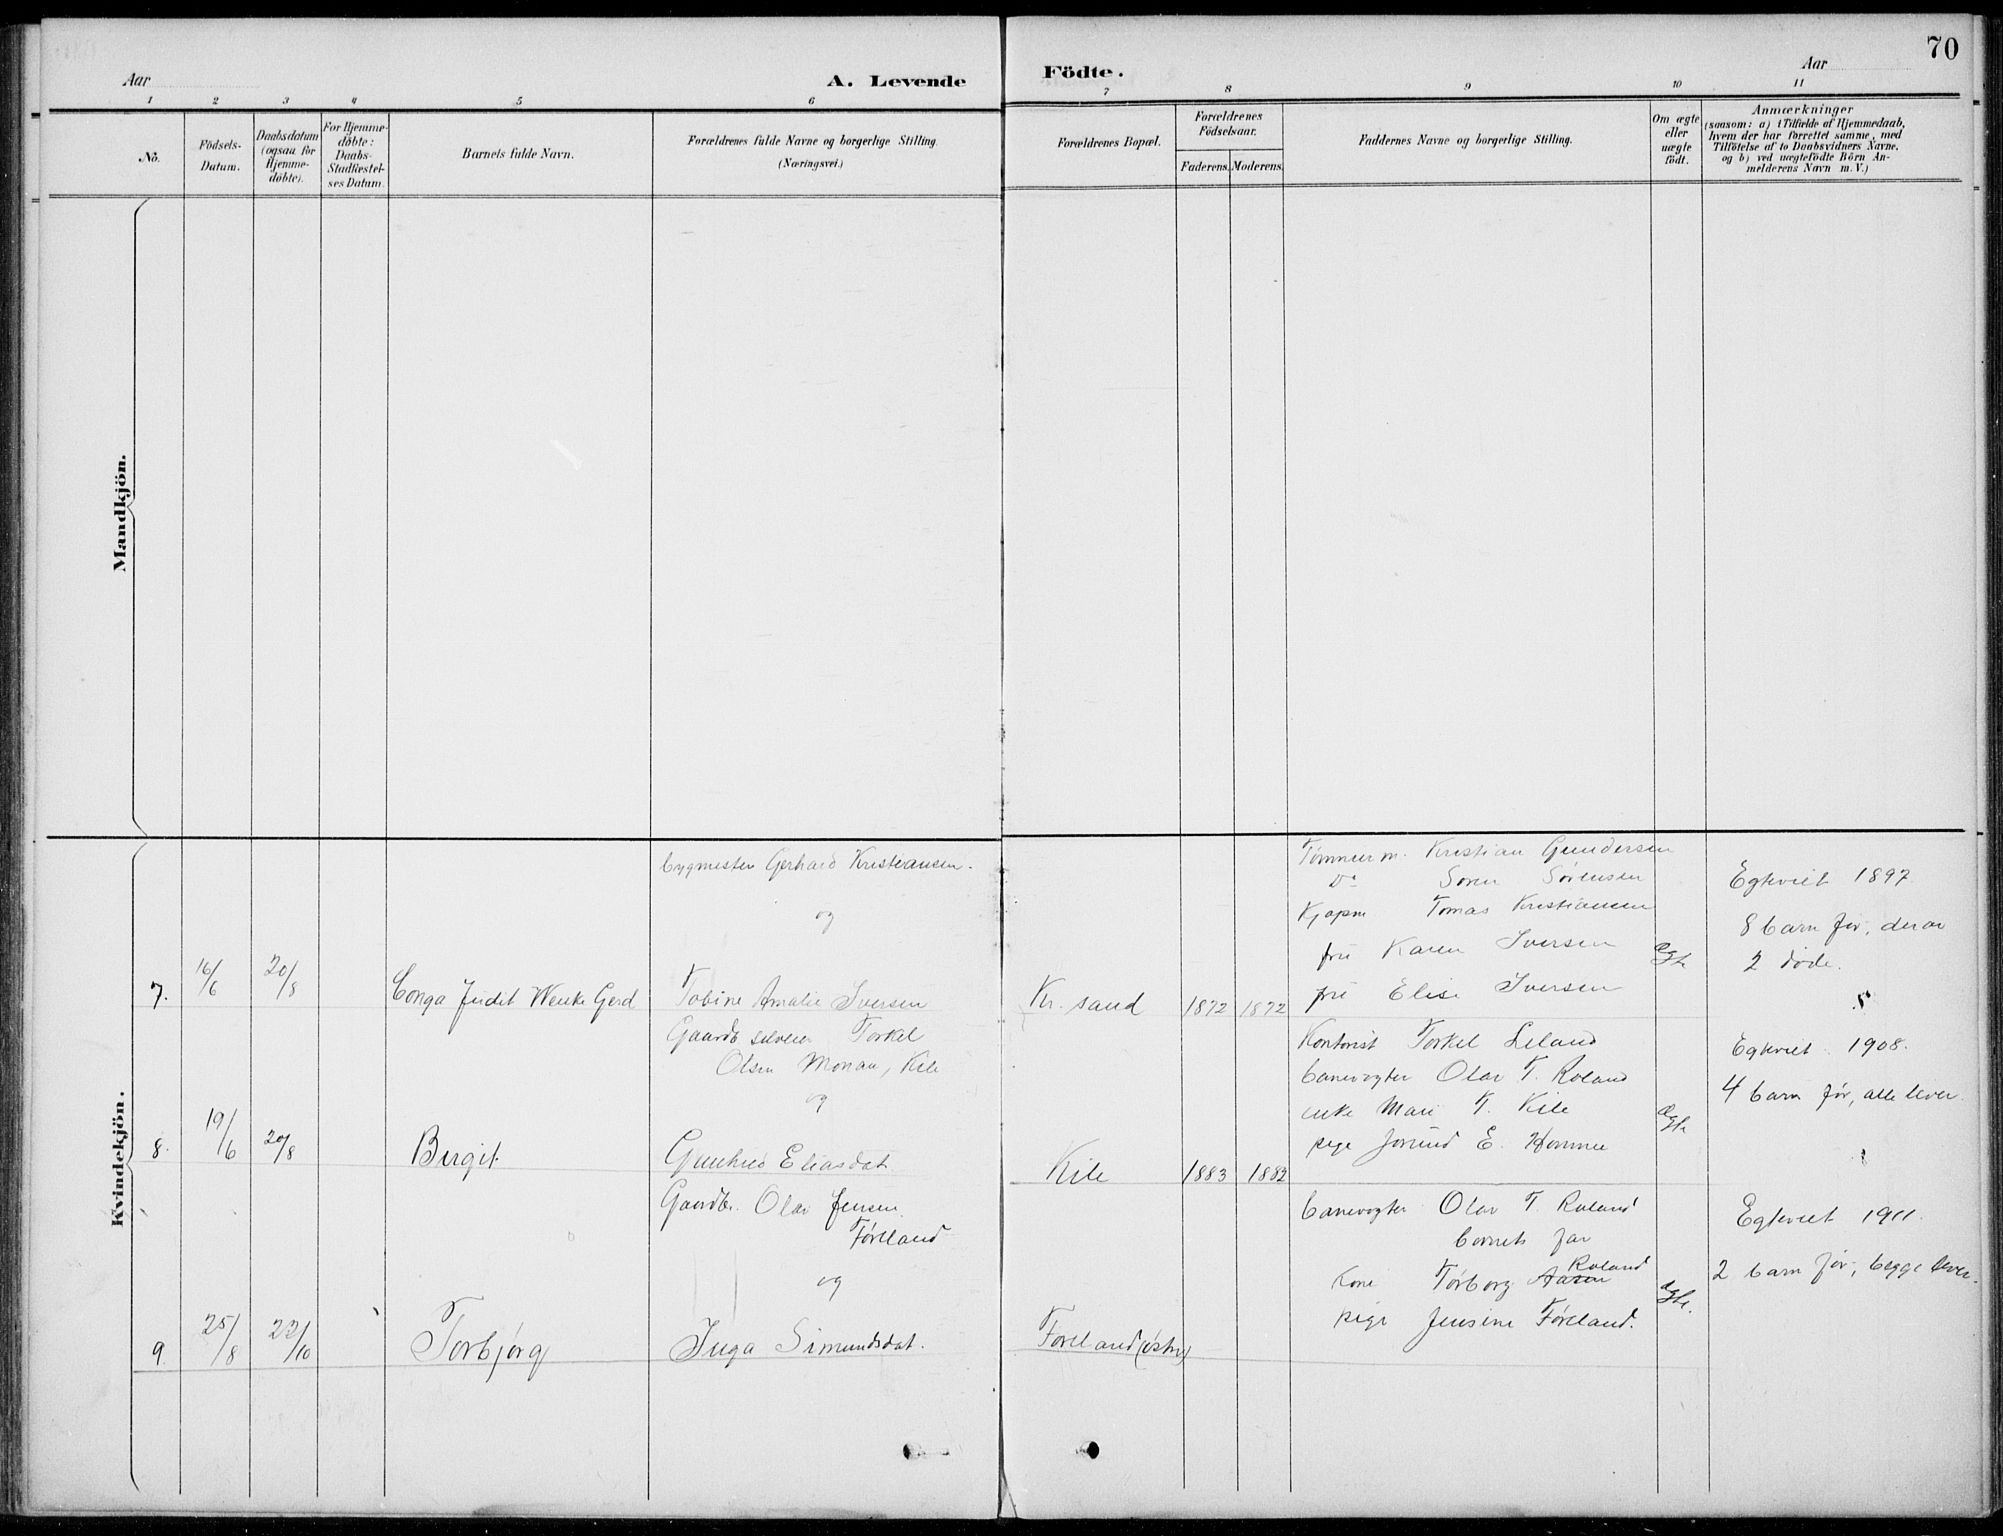 70
Aar
A. Levende
Födte.
Aar
1 2 3 4 5 6 7 8 9 10 11
No.
Födsels-
Datum.
Daabsdatum
(ogsaa for
Hjemme-
döbte).
For Hjemme-
döbte:
Daabs-
Stadfæstel-
ses Datum.
Barnets fulde Navn.
Forældrenes fulde Navne og borgerlige Stilling.
(Næringsvei.)
Forældrenes Bopæl.
Forældrenes
Födselsaar.
Faderens. Moderens.
Faddernes Navne og borgerlige Stilling.
Om ægte
eller
uægte
födt.
Anmærkninger
(saasom: a) i Tilfælde af Hjemmedaab,
hvem der har forrettet samme, med
Tilföielse af to Daabsvidners Navne,
og b) ved uægtefödte Börn An-
melderens Navn m. V.)
Mandkjön.
Kvindekjön.
7.
16/6
20/8
Conga Judit Wenke Gerd
bygmester Gerhard Kristiansen.
og
Tobine Amalie Iversen
Kr. sand
1872 1872
Tømmerm. Kristian Gundersen
Do Søren Sørensen
Kjøpm Tomas Kristiansen
fru Karen Iversen
fru Elise Iversen
Ægte
Egteviet 1897.
8 barn før, derav
2 døde.
8.
19/6
20/8
Birgit
Gaardb. selveier Torkel
Olsen Monan, Kile
og
Gunhild Eliasdat.
Kile
1883 1882
Kontorist Torkel Leland
banevogter Olav T. Roland
enke Mari T. Kile
pige Jorund E. Homme
Ægte
Egteviet 1908.
4 barn før, alle lever.
9.
25/8
22/10
Torbjørg
Gaardbr. Olav Jensen
Føreland
og
Inga Simundsdat.
Føreland (østre)
banevogter Olav T. Roland
barnets far
Roland
kone Torborg Aasen
pige Jensine Føreland.
Ægte.
Egteviet 1911.
2 barn før, begge lever.